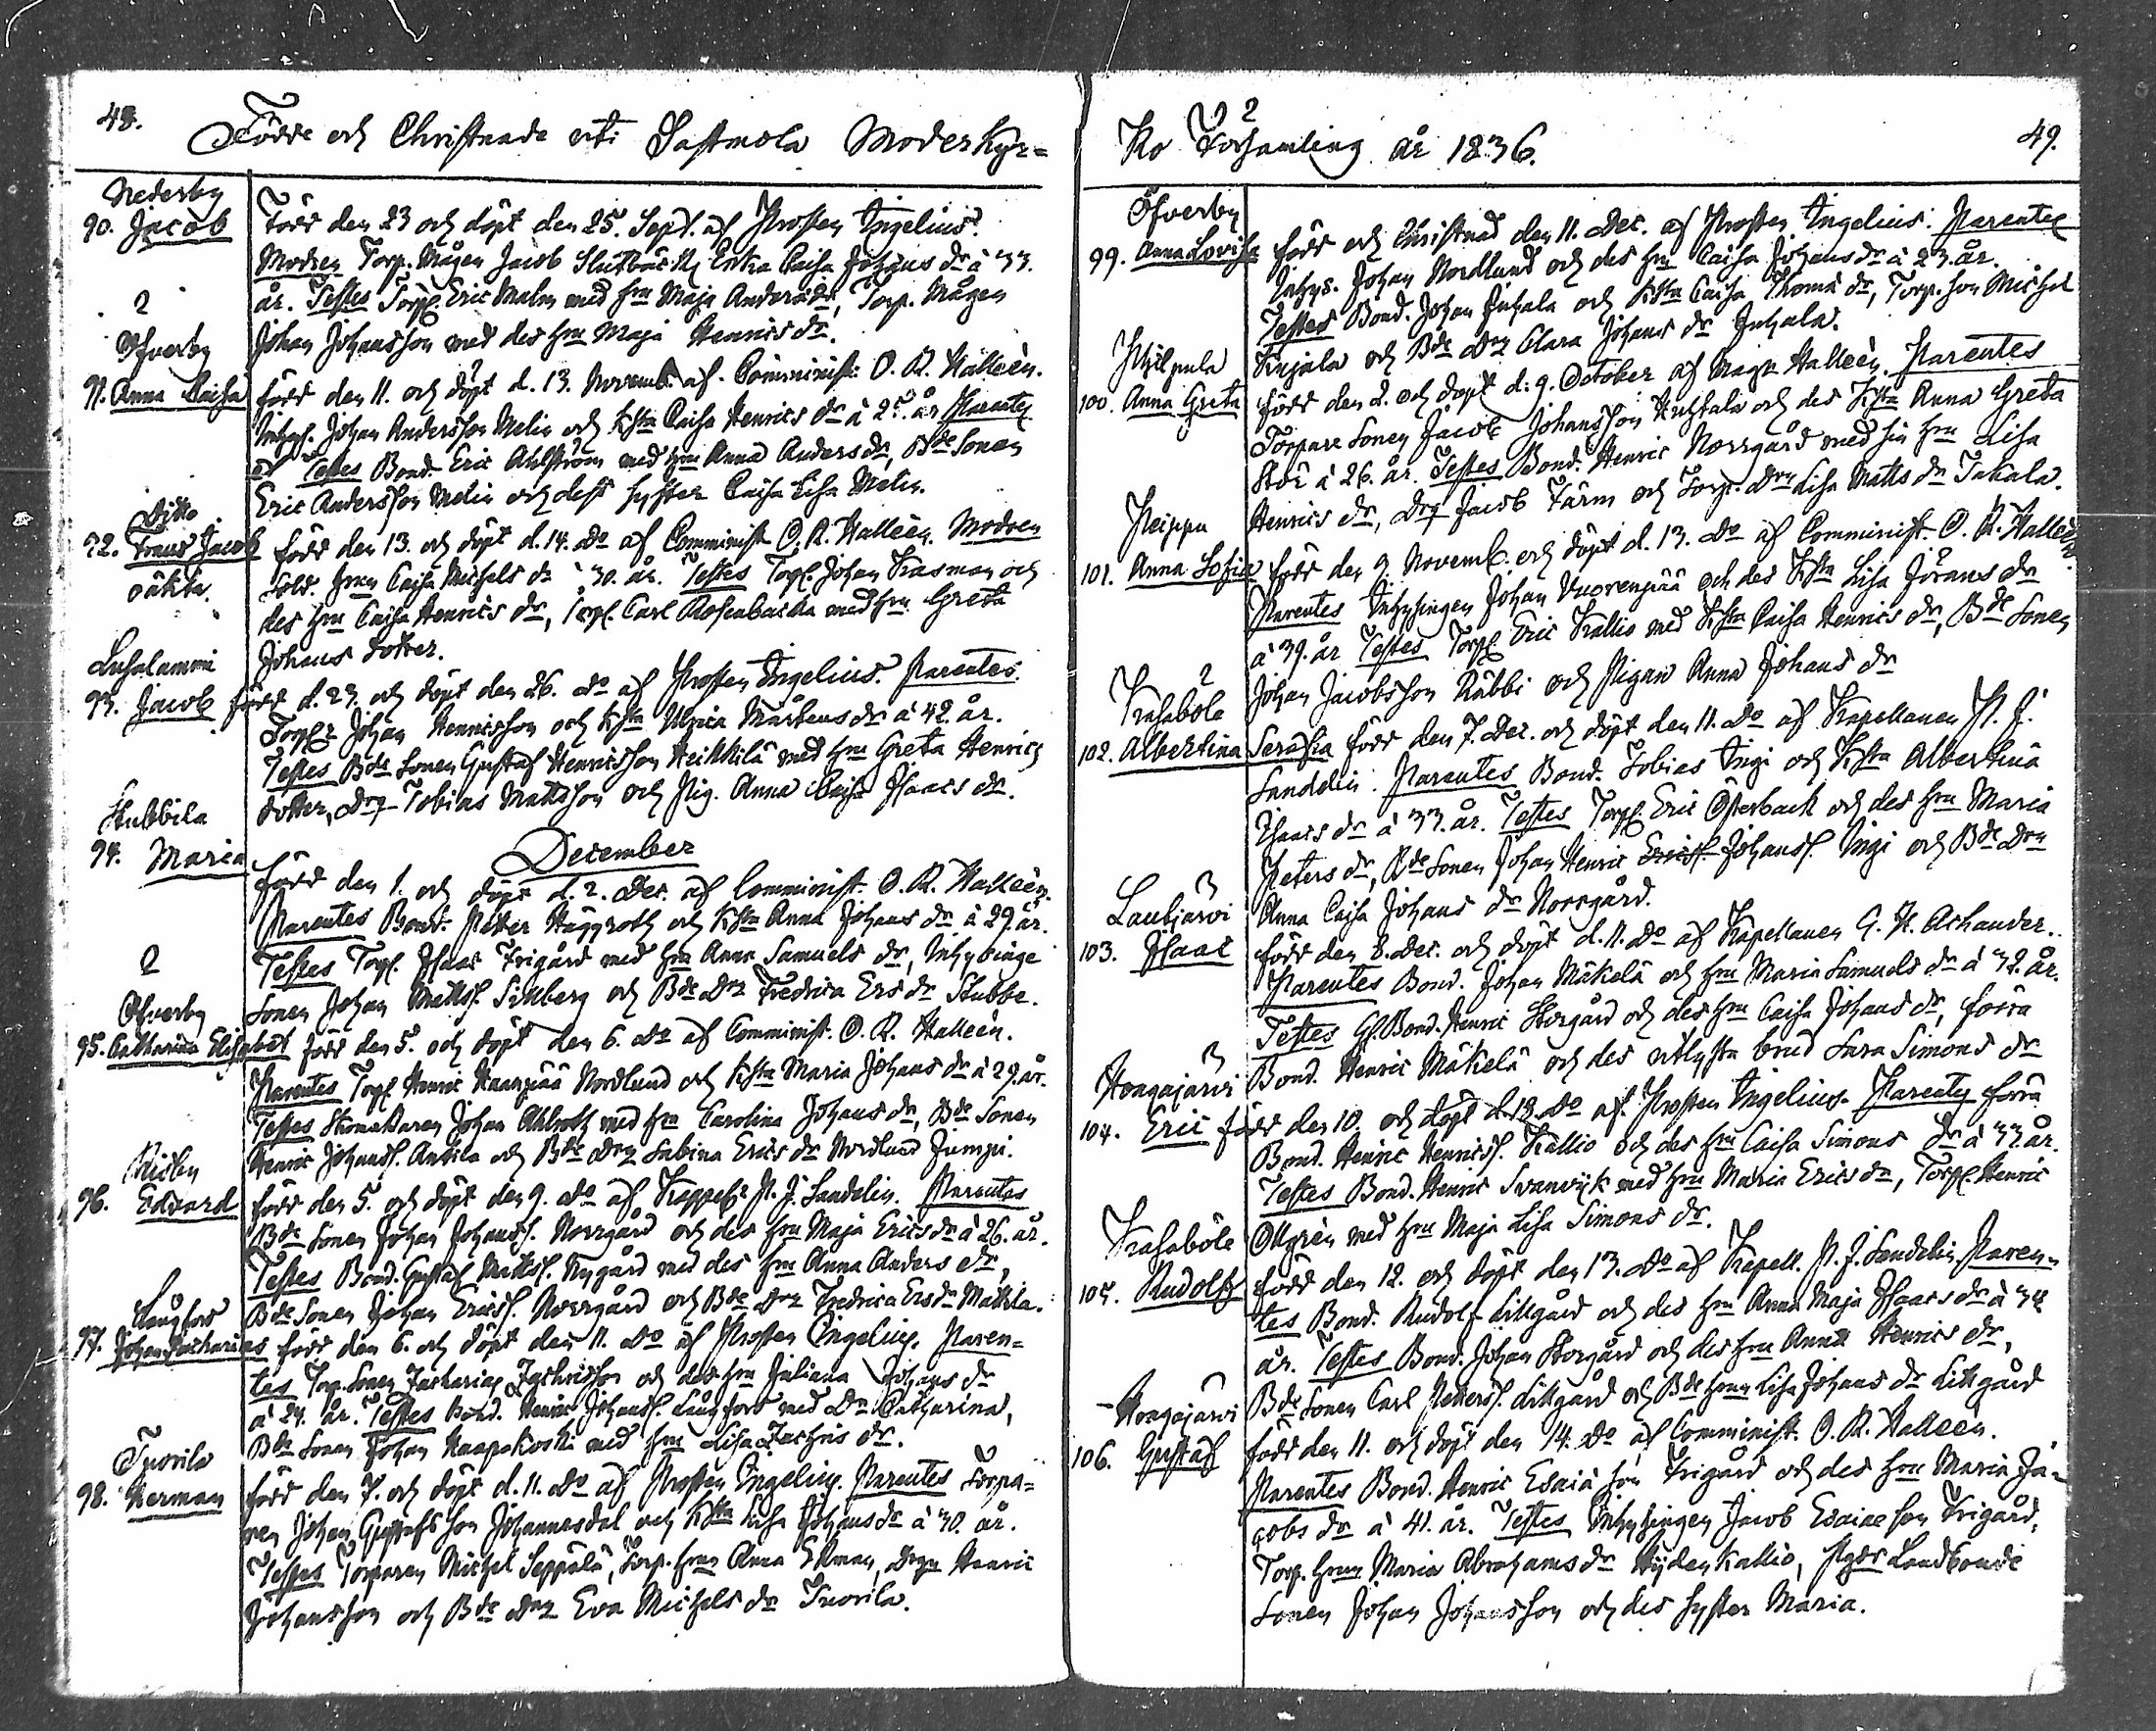 48.
Födde och Christnade uti Sastmola Moderkyr=
Nederby
90. Jacob
född den 23 och döpt den 25. Sept. af Prosten Ingelius.
Modren Torp. Mågen Jacob Enka Caisa Johans dr à 33.
år. Testes Torp. Eric Malm med hru Maja Anders dr, Torp. Mågen
Johan Johansson med des hru Maja Henrics dr.
2
Ofverby
91. Anna Caisa
född den 11. och döpt d. 13. Novemb. af Comminist. O. R. Halleèn.
Inhys. Johan Andersson Melin och hstr Caisa Henrics dr à 25. år Parentes
Testes Bond. Eric Ahlström med hru Anna Anders dr, Bde Sonen
Eric Andersson Melin och dess syster Caisa Lisa Melin.
Ditto
92. Frans Jacob
oäkta.
född den 13. och döpt d. 14. do af Comminist O. R. Halleèn. Modren
Sold. hrun Caisa Michels dr à 30. år. Testes Torp. Johan Krasman och
des hru Caisa Henrics dr, Torp. Carl Rosenbacka med hru Greta
Johans dotter.
Lusalammi
93. Jacob
född d. 23. och döpt den 26. do af Prosten Ingelius. Parentes
Torp. Johan Henricsson och hstr Ulrica Mårtens dr à 42. år.
Testes Bde Sonen Gustaf Henricsson Heikkilä med hru Greta Henrics
dotter, Drg Tobias Mattsson och Pig. Anna Caisa Isaacs dr.
December
Stubbila
94. Maria
född den 1. och döpt d. 2. Dec. af Comminist. O. R. Halleèn.
Parentes Bond. Petter Häggroth och hstr Anna Johans dr à 29. år.
Testes Torp. Isaac Frigård med hru Anna Samuels dr, Inhysinge
Sonen Johan Matts. Sillberg och Bde Dtr Fredrica Ers dr Stubbe.
2
Ofverby
95. Catharina Elisabet
född den 5. och döpt den 6. do af Comminist. O. R. Halleèn.
Parentes Torp. Henric Haarpää Nordlund och hstr Maria Johans dr à 29. år.
Testes Skomakaren Johan Ahlroth med hru Carolina Johans dr, Bde Sonen
Henric Johanss. Antila och Bde Dtr Sabina Erics dr Nordlund Jumpi.
Risby
96. Edvard
född den 5. och döpt den 9. do af Kappel. P. J. Sandelin. Parentes
Bde Sonen Johan Johanss. Norrgård och des hru Maja Erics dr à 26. år.
Testes Bond. Gustaf Matts. Nygård med des hru Anna Anders dr,
Bde Sonen Johan Ericss. Norrgård och Bde Dtr Fredrica Ers dr Mattila.
Långfors
97. Johan Zacharias
född den 6. och döpt den 11. do af Prosten Ingelius. Paren=
tes Torp. Sonen Zacharias Zachrisson och des hru Juliana Johans dr
à 24. år. Testes Bond. Henric Johanss. Långfors med Dr Catharina,
Bde Sonen Johan Haapakoski med hru Lisa Zachris dr.
Tuorila
98. Herman
född den 7. och döpt d. 11. do af Prosten Ingelius. Parentes Torpa=
ren Johan Gustafsson Johannesdal och hstr Lisa Johans dr à 30. år.
Testes Torparen Michel Seppälä, Torp. hrun Anna Ekman, Drgn Henric
Johansson och Bde Dtr Eva Michels dr Tuorila.
ko Församling år 1836.
49.
Öfverby
99. Anna Lovisa
född och Christnad den 11. Dec. af Prosten Ingelius. Parentes
Inhys. Johan Nordlund och des hru Caisa Johans dr à 23. år.
Testes Bond. Johan Juhala och hstr Caisa Thoma dr, Torp. Son Michel
Kujala och Bde Dtr Clara Johans dr Juhala.
100. Anna Greta
född den 2. och döpt d: 9. October af Mag. Halleèn. Parentes
Torpare Sonen Jacob Johansson Huhtala och des hstr Anna Greta
Stör à 26. år. Testes Bond. Henric Norrgård med sin hru Lisa
Henrics dr, Drg Jacob Färm och Torp. Dtr Lisa Matts dr Takala.
Peippu
101. Anna Sofia
född den 9 Novemb. och döpt d. 13. do af Comminist. O. R. Halleèn.
Parentes Inhysingen Johan Vuorenpää och des hstr Lisa Jörans dr
à 39. år Testes Torp. Eric Kallio med hstr Caisa Henrics dr, Bde Sonen
Johan Jacobsson Räbbi och Pigan Anna Johans dr
2
Kasaböle
102. Albertina Serafia
född den 7. Dec. och döpt den 11. do af Kapellanen P. J.
Sandelin. Parentes Bond. Tobias Ingi och hstr Albertina
Isaacs dr à 33. år. Testes Torp. Eric Österback och des hru Maria
Peters dr, Bde Sonen Johan Henric Ericss. Johanss. Ingi och Bde Dtr
Anna Caisa Johans dr Norrgård.
3
Lautjärvi
103. Isaac
född den 8. Dec. och döpt d. 11. do af Kapellanen G. H. Achander.
Parentes Bond. Johan Mäkelä och hru Maria Samuels dr à 32. år.
Testes Gl. Bond. Henric Storgård och des hru Caisa Johans dr, förra
Bond. Henric Mäkelä och des utlysta brud Sara Simons dr
3
Hongajärvi
104. Eric
född den 10. och döpt d. 13. do af Prosten Ingelius. Parentes förra
Bond. Henric Henricss. Kallio och des hru Caisa Simons dr à 33. år.
Testes Bond. Henric Svanvijk med hru Maria Erics dr, Torp. Henric
Ollgrèn med hru Maja Lisa Simons dr.
Kasaböle
105. Rudolf
född den 12. och döpt den 13. do af Kapell. P. J. Sandelin. Paren=
tes Bond. Rudolf Lillgård och des hru Anna Maja Isaacs dr à 34
år. Testes Bond. Johan Storgård och des hru Anna Henrics dr,
Bde Sonen Carl Petterss. Lillgård och Bde hrun Lisa Johans dr Lillgård
Hongajärvi
106. Gustaf
född den 11. och döpt den 14. do af Comminist. O. R. Halleèn.
Parentes Bond. Henric Esaiæ son Frigård och des hru Maria Ja=
cobs dr à 41. år. Testes Inhysingen Jacob Esaiae son Frigård,
Torp. hrun Maria Abrahams dr Hyden Kallio, Landbonde
Sonen Johan Johansson och des syster Maria.